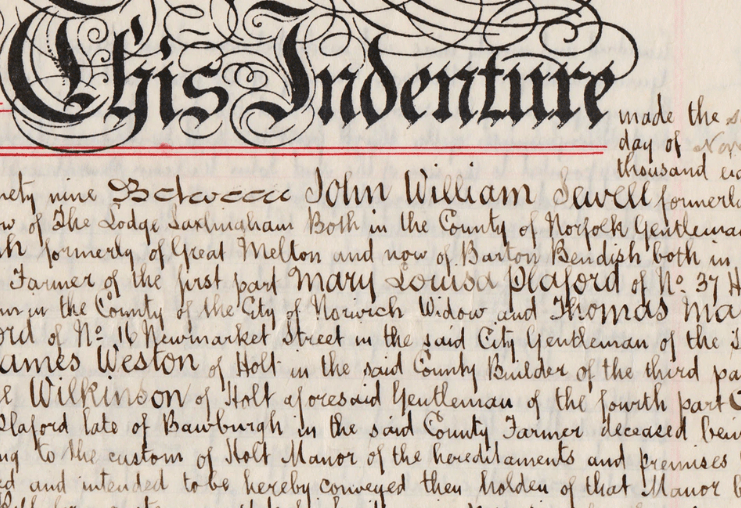 This Indenture
made the
day of Nov
thousand
nety nine Between John William Sewell formerly
w of The Lodge Sarlingham Both in the County of Norfolk Gentleman
formerly of Great Melton and now of Barton Bendish both in
Farmer of the first part Mary Louisa Playford of No. 37 H
in the County of the City of Norwich Widow and Thomas Ma
ord of No. 16 Newmarket Street in the said City Gentleman of the
ames Weston of Holt in the said County Builder of the third pa
Wilkinson of Holt aforesaid Gentleman of the fourth part
Playford late of Bawburgh in the said County Farmer deceased bein
ng to the custom of Holt Manor of the hereditaments and premises
ed and intended to be hereby conveyed then holden of that Manor